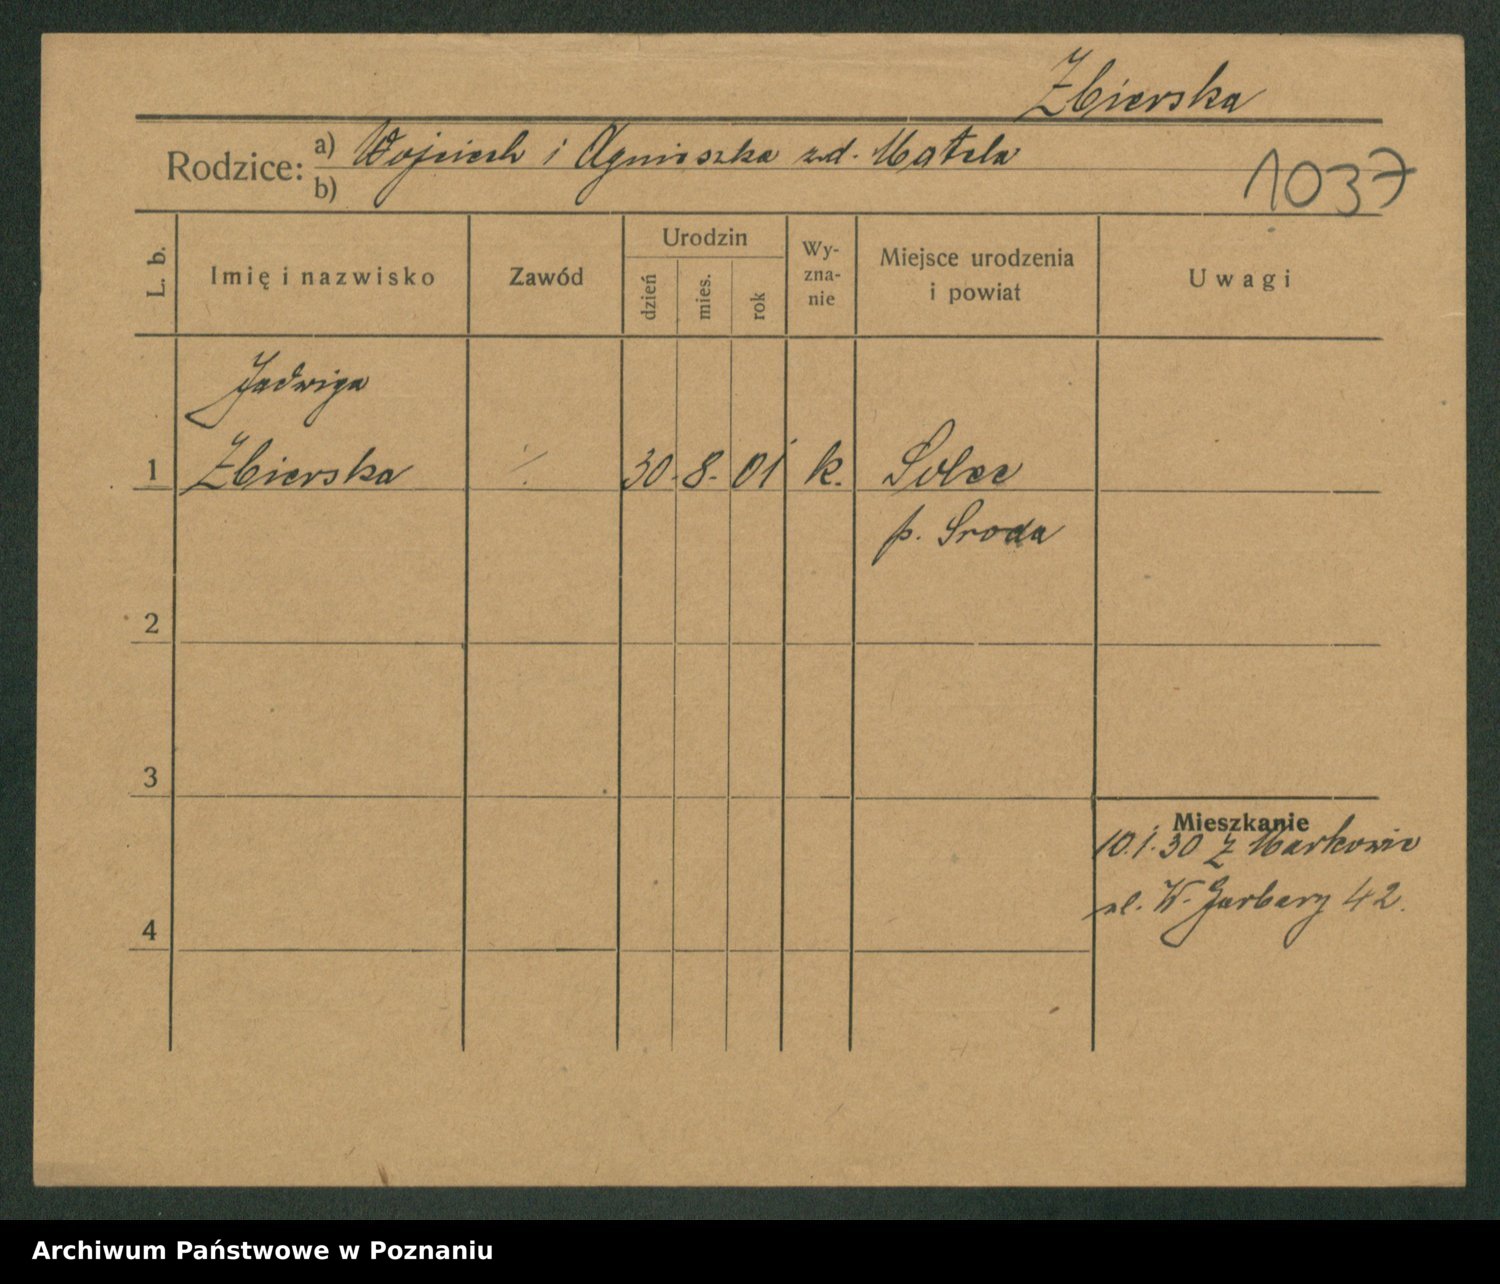 Zbierska
Rodzice: a) Wojciech i Agnieszka zd. Matela
b)
1037
L. b.
Imię i nazwisko
Zawód
Urodzin
dzień
mies.
rok
Wy-
zna-
nie
Miejsce urodzenia
i powiat
Uwagi
Jadwiga
1 Zbierska ·/. 30. 8. 01 k. Solec
p. Sroda
2
3
Mieszkanie
10.1.30 z Markowic
ul. W. Garbary 42.
4
Archiwum Państwowe w Poznaniu